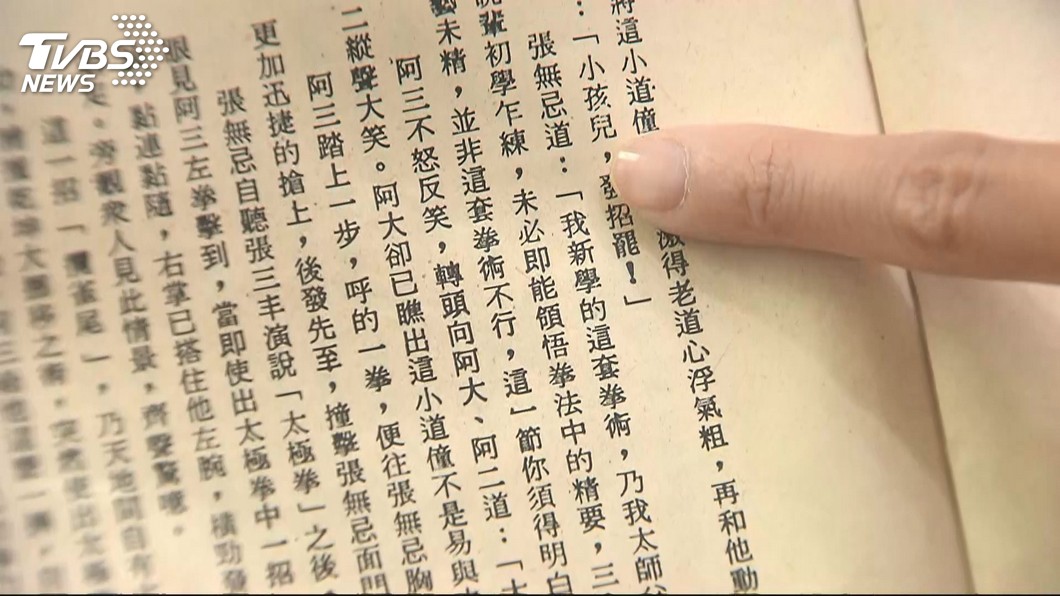 TVBS
NEWS
將這小道僮激得老道心浮氣粗，再和他動
：「小孩兒，發招罷！」
張無忌道：「我新學的這套拳術，乃我太師父
晚輩初學乍練，未必即能領悟拳法中的精要，三
藝未精，並非這套拳術不行，這一節你須得明白
阿三不怒反笑，轉頭向阿大、阿二道：「
二縱聲大笑。阿大卻已瞧出這小道僮不是易與
阿三踏上一步，呼的一拳，便往張無忌胸
更加迅捷的搶上，後發先至，撞擊張無忌面門
張無忌自聽張三丰演說「太極拳」之後，
眼見阿三左拳擊到，當即使出太極拳中一招
黏連黏隨，右掌已搭住他左腕，橫勁發
旁觀衆人見此情景，齊聲驚噫。
這一招「攬雀尾」，乃天地間自有